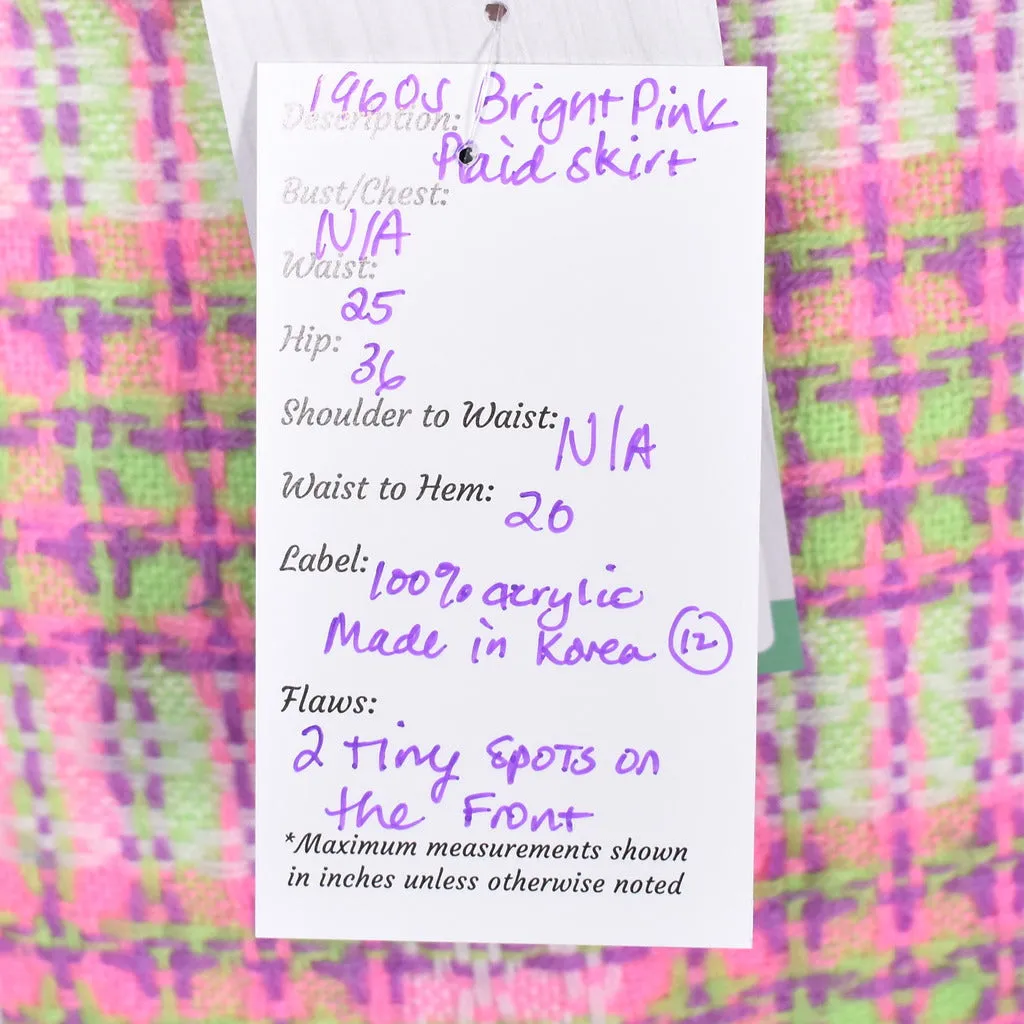 1960s Bright Pink
Description:
Plaid skirt
Bust/Chest:
N/A
Waist:
25
Hip:
36
Shoulder to Waist: N/A
Waist to Hem: 20
Label: 100% acrylic
Made in Korea 12
Flaws:
2 tiny spots on
the Front
*Maximum measurements shown
in inches unless otherwise noted